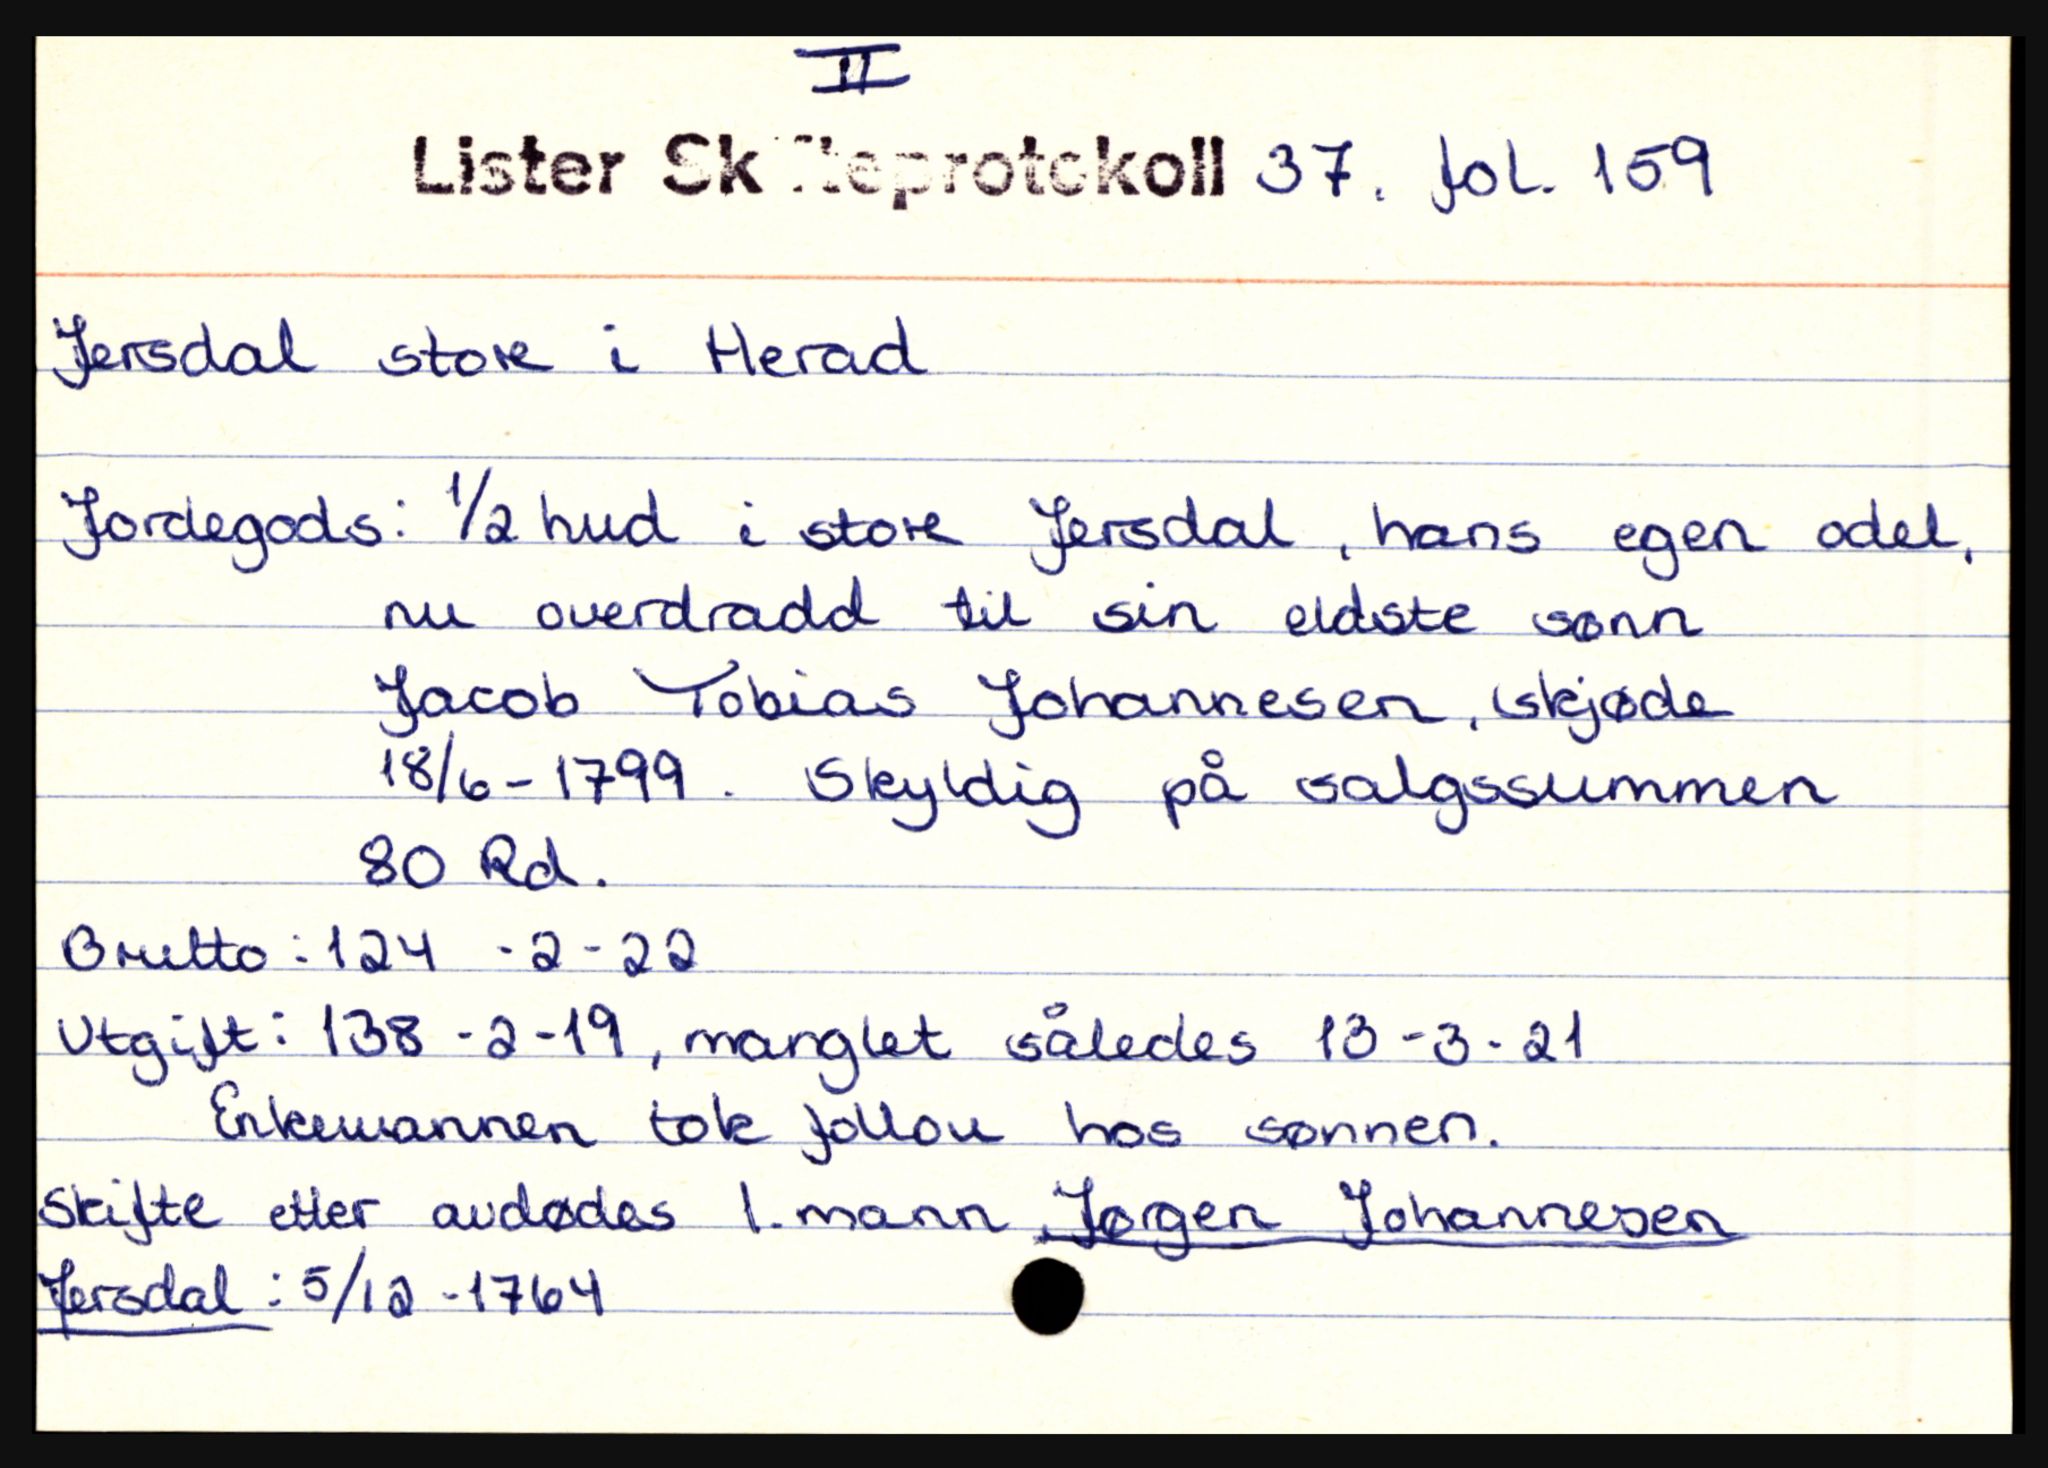 II
Lister Skifteprotokoll 37. fol. 159
Jersdal store i Herad
Jordegods: 1/2 hud i store Jersdal, hans egen odel,
nu overdradd til sin eldste sønn
Jacob Tobias Johannesen, skjøde
18/6-1799. Skyldig på salgssummen
80 Rd.
Brutto: 124 -2-22
Utgift: 138 -2-19, manglet således 13-3-21
Enkemannen tok follou hos sønnen.
Skifte etter avdødes 1. mann, Jørgen Johannesen
Jersdal: 5/12-1764